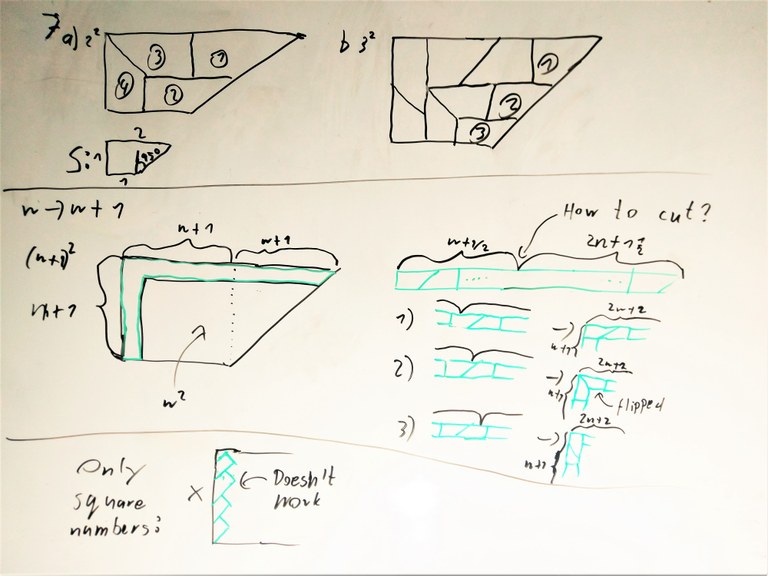 7a) 2²
b 3²
3
1
4
2
1
2
3
S:
2
1
1
45°
n → n + 1
(n+1)²
n+1
n+1
n+1
n²
How to cut?
n+1/2
2n+1 1/2
1)
2n+2
n+1
2)
2n+2
n+1
flipped
3)
2n+2
n+1
Only
square
numbers:
x
Doesn't
work